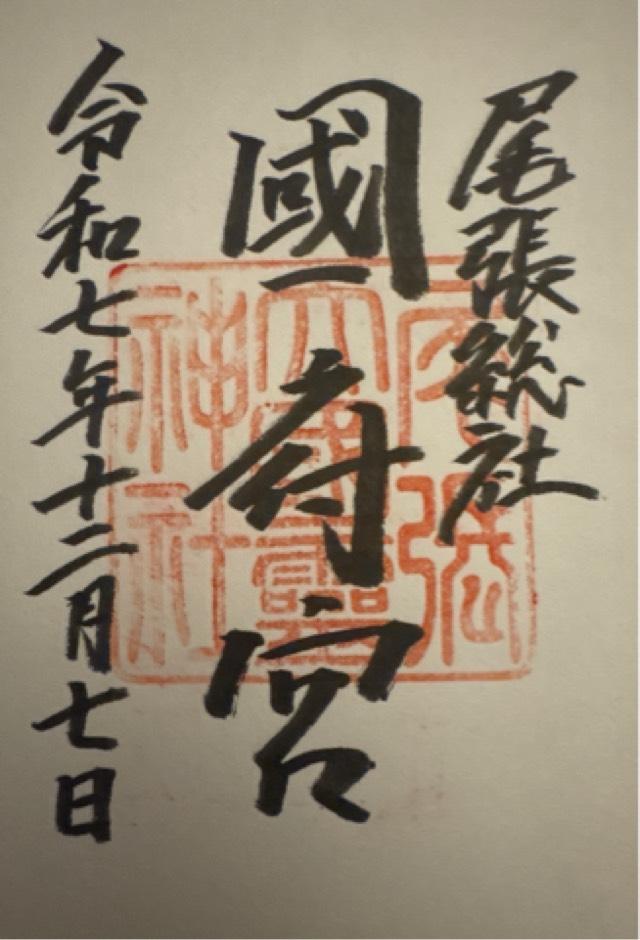 尾張総社
國府宮
令和七年十二月七日
尾張
大國靈
神社